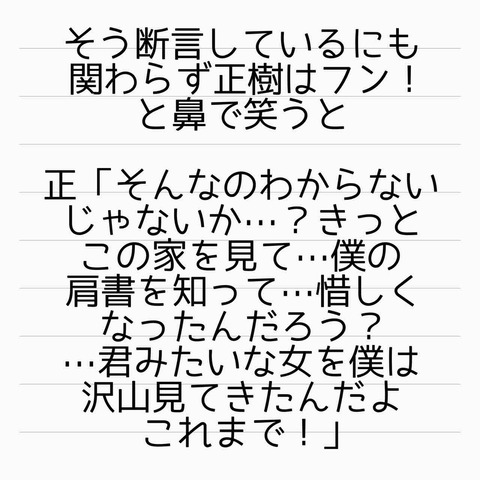 そう断言しているにも
関わらず正樹はフン！
と鼻で笑うと
正「そんなのわからない
じゃないか…？きっと
この家を見て…僕の
肩書を知って…惜しく
なったんだろう？
…君みたいな女を僕は
沢山見てきたんだよ
これまで！」